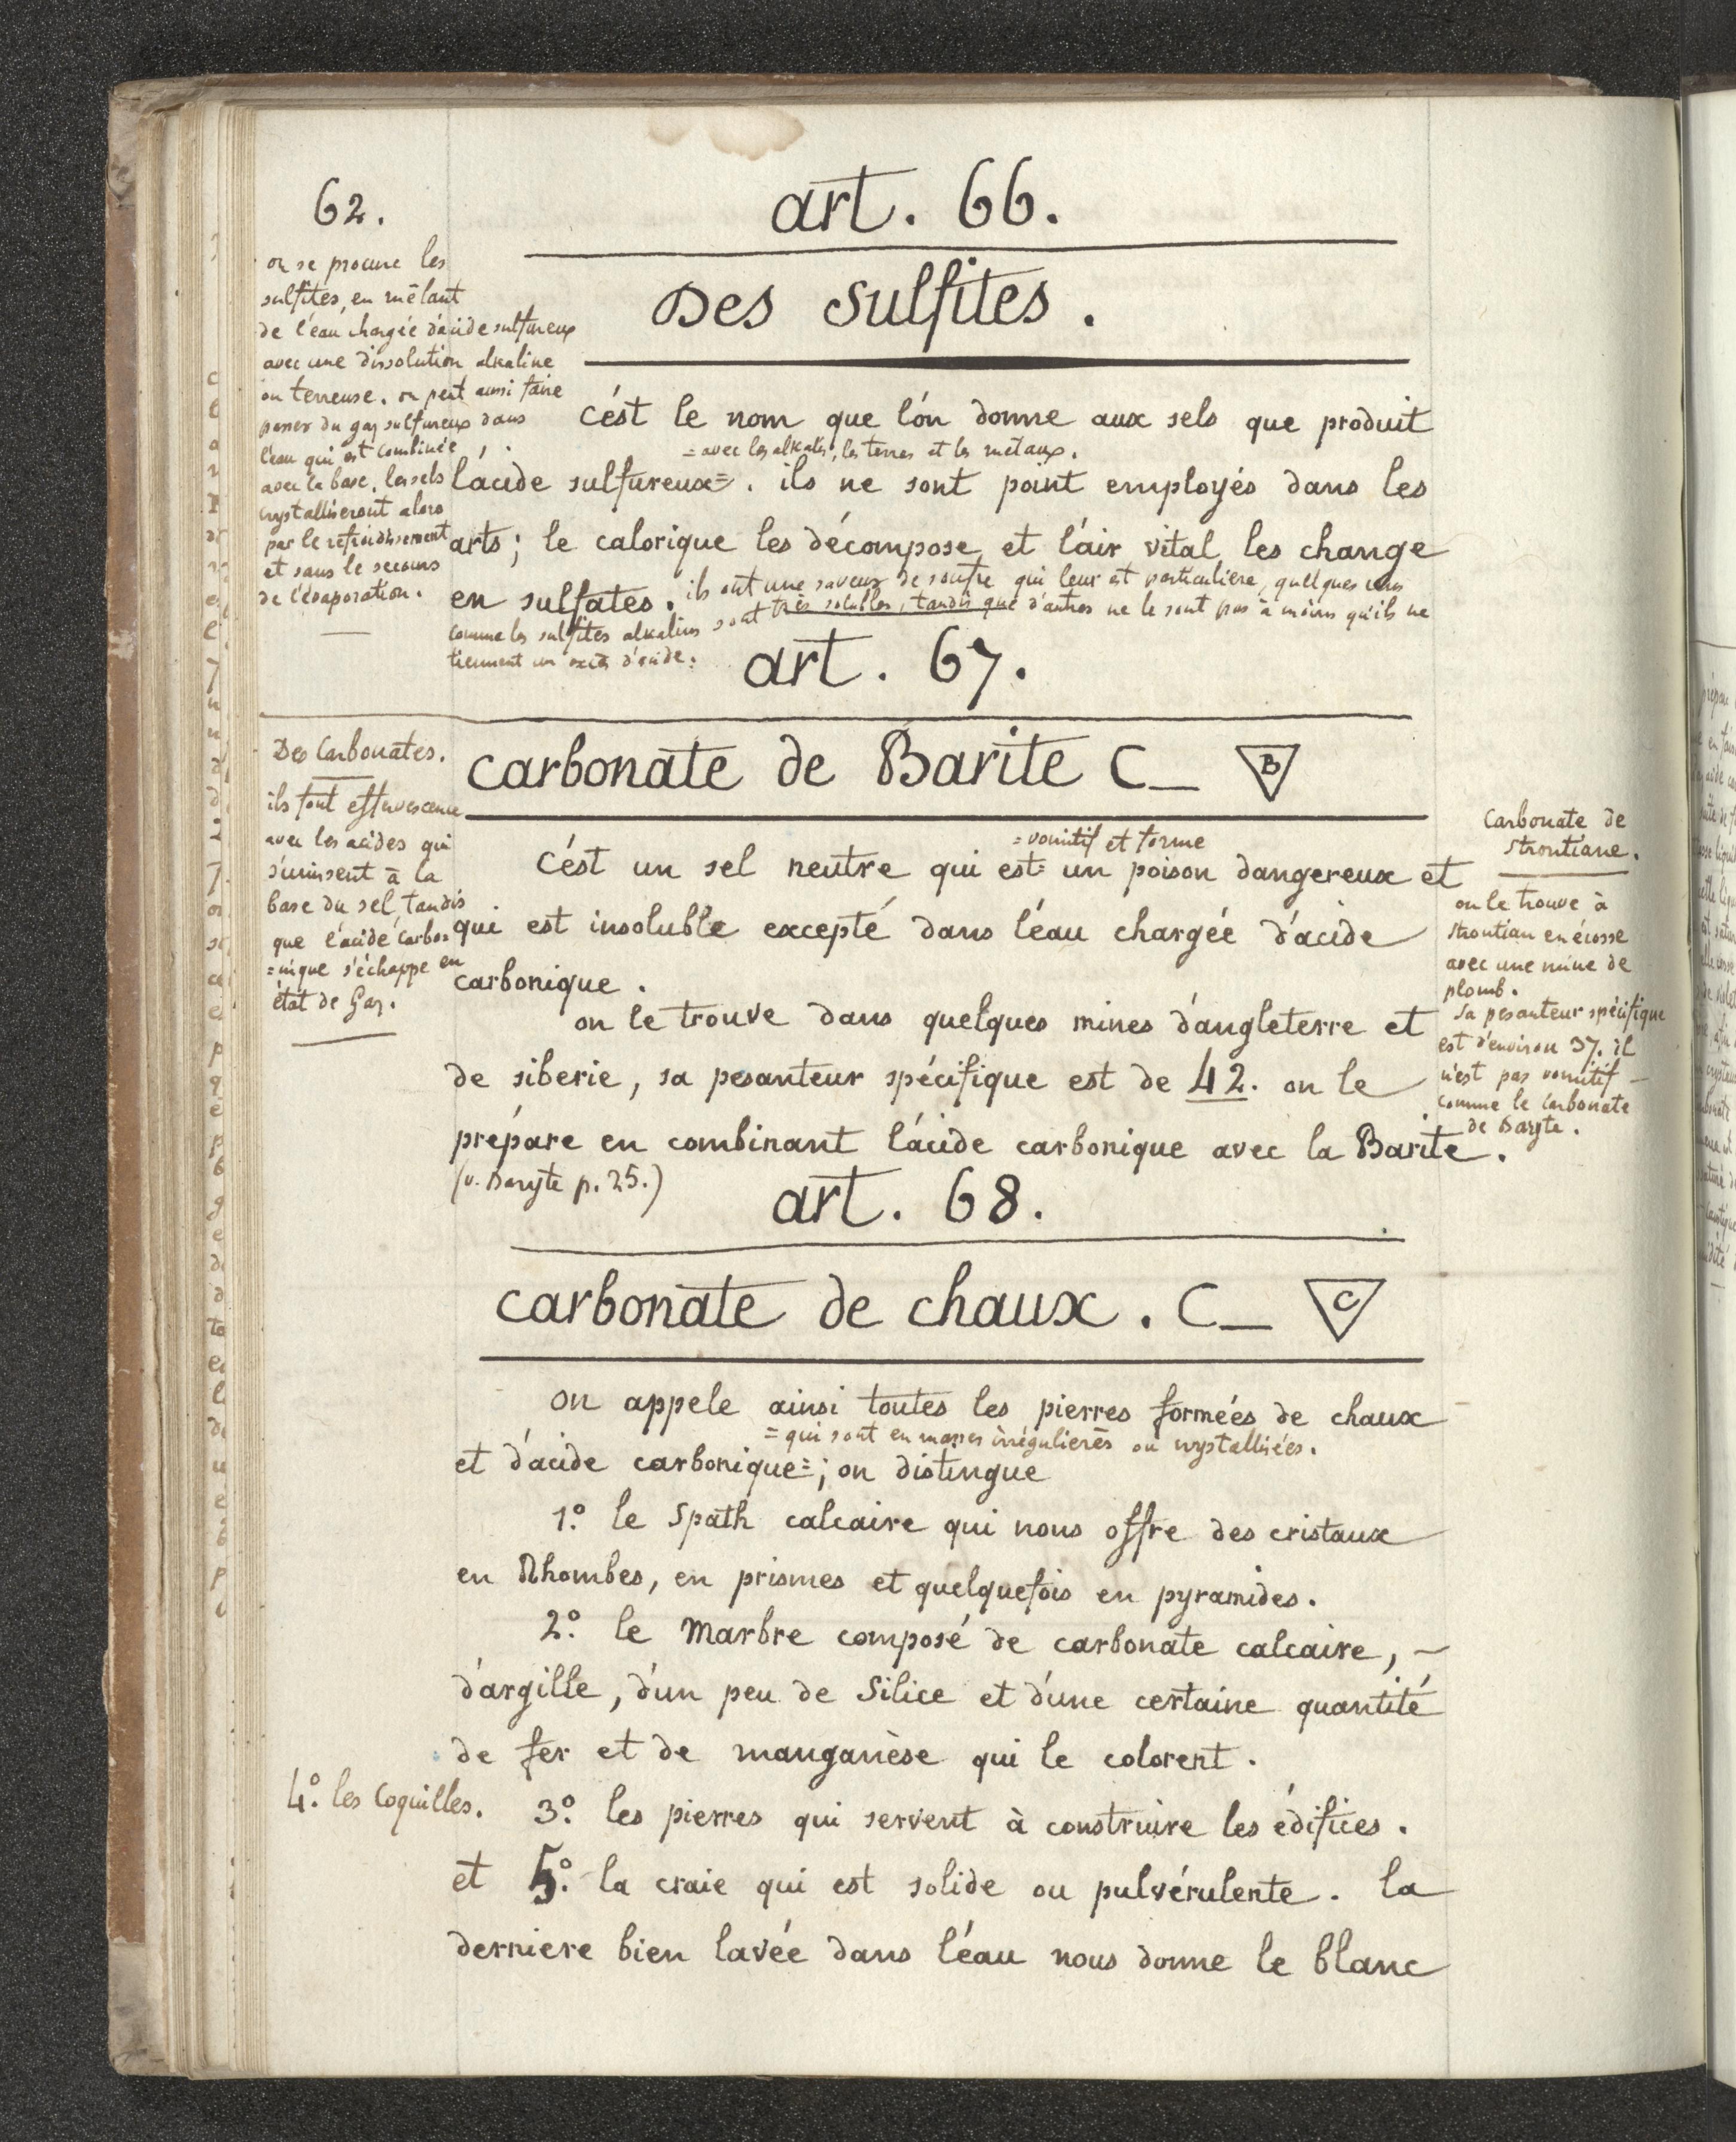 62.
art. 66.
Des Sulfites.
on se procure les
sulfites, en mêlant
de l'eau chargée d'acide sulfureux
avec une dissolution alkaline
ou terreuse. on peut aussi faire
passer du gaz sulfureux dans
l'eau qui est combinée
avec la base, les sels
crystalliseront alors
par le refroidissement
et sans le secours
de l'évaporation.
c'ést le nom que l'ón donne aux sels que produit
= avec les alkalis, les terres et les métaux.
lacide sulfureux=. ils ne sont point employés dans les
arts; le calorique les décompose, et l'air vital les change
en sulfates. ils ont une saveur de soufre qui leur est particulière, quelques uns
comme les sulfites alkalins sont très solubles, tandis que d'autres ne le sont pas à moins qu'ils ne
tiennent un excès d'acide.
art. 67.
carbonate de Barite C_ B
Des Carbonates.
ils font effervescence
avec les acides qui
s'unissent à la
base du sel, tandis
que l'acide carbo=
=nique s'échappe en
état de Gaz.
= vomitif et forme
c'ést un sel neutre qui est= un poison dangereux et
qui est insoluble excepté dans l'éau chargéé d'acide
carbonique.
on le trouve dans quelques mines d'angleterre et
de siberie, sa pesanteur spécifique est de 42. on le
prépare en combinant l'ácide carbonique avec la Barite.
(v. Baryte p. 25.)
Carbonate de
Strontiane.
on le trouve à
Strontian en écosse
avec une mine de
plomb.
sa pesanteur spécifique
est d'environ 37. il
n'est pas vomitif
comme le carbonate
de Baryte.
art. 68.
carbonate de chaux. C_ C
on appele ainsi toutes les pierres forméés de chaux
= qui sont en masses irrégulieres ou crystallisées.
et d'acide carbonique=; on distingue
1.° le Spath calcaire qui nous offre des cristaux
en Rhombes, en prismes et quelquefois en pyramides.
2.° le Marbre composé de carbonate calcaire, -
d'argille, d'un peu de Silice et d'une certaine quantité
de fer et de manganèse qui le colorent.
4.° les Coquilles.
3.° les pierres qui servent à construire les édifices.
et 5.° la craie qui est solide ou pulvérulente. la
derniere bien lavée dans l'éau nous donne le blanc